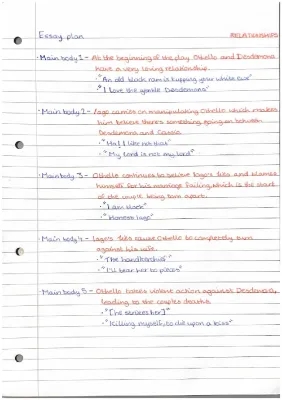 Essay plan
RELATIONSHIPS
Main body 1 - At the beginning of the play Othello and Desdemona
have a very loving relationship.
"An old black ram is tupping your white ewe"
"I love the gentle Desdemona"
Main body 2 - Iago carries on manipulating Othello which makes
him believe there's something going on between
Desdemona and Cassio.
"Ha! I like not that"
"My lord is not my lord"
Main body 3 - Othello continues to believe Iago's lies and blames
himself for his marriage failing, which is the start
of the couple being torn apart.
"I am black"
"Honest Iago"
Main body 4 - Iago's lies cause Othello to completely turn
against his wife.
"The handkerchief"
"I'll tear her to pieces"
Main body 5 - Othello takes violent action against Desdemona,
leading to the couples deaths.
"[he strikes her]"
"Killing myself, to die upon a kiss"